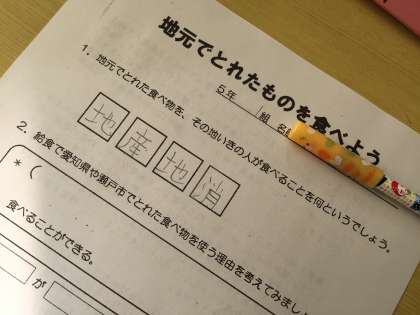 地元でとれたものを食べよう
5年 組 名前
1. 地元でとれた食べ物を、その地いきの人が食べることを何というでしょう。
地産地消
2. 給食で愛知県や瀬戸市でとれた食べ物を使う理由を考えてみまし
* (
食べることができる。
が